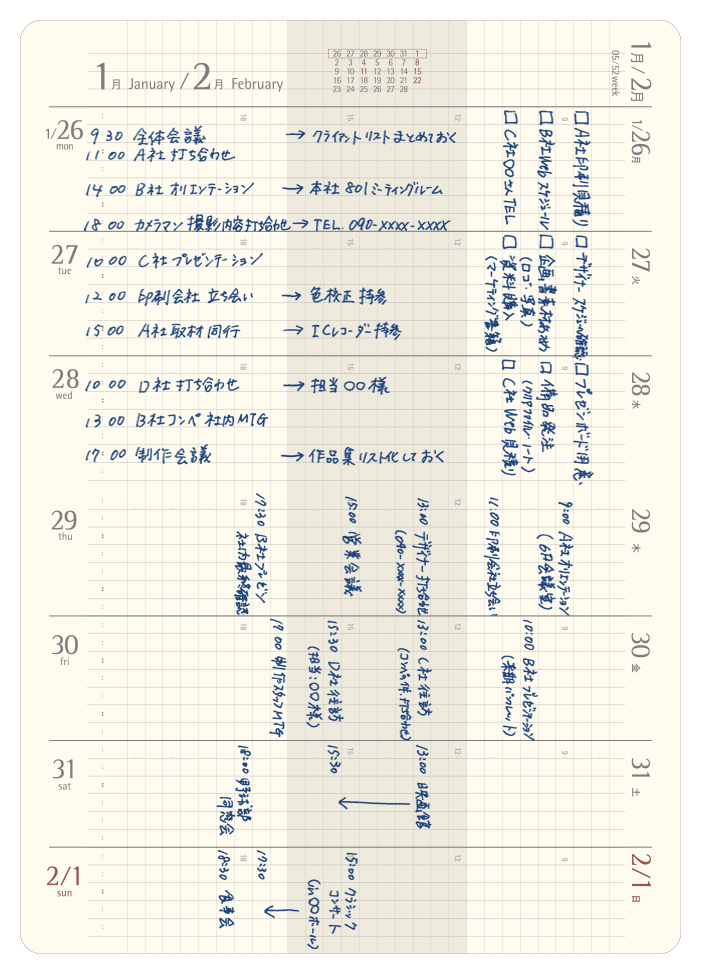 1月 January / 2月 February
26 27 28 29 30 31 1
2 3 4 5 6 7 8
9 10 11 12 13 14 15
16 17 18 19 20 21 22
23 24 25 26 27 28
1月/2月
05/52week
1/26 mon
9:30 全体会議 → クライアントリストまとめておく
11:00 A社 打ち合わせ
14:00 B社 オリエンテーション → 本社 801 ミーティングルーム
18:00 カメラマン 撮影内容打ち合わせ → TEL. 090-xxxx-xxxx
27 tue
10:00 C社 プレゼンテーション
12:00 印刷会社 立ち会い → 色校正 持参
15:00 A社 取材同行 → ICレコーダー持参
28 wed
10:00 D社 打ち合わせ → 担当〇〇様
13:00 B社コンペ 社内MTG
17:00 制作会議 → 作品集リスト化しておく
1/26 月
□ A社印刷見積り
□ B社Web スケジュール
□ C社〇〇さんTEL
27 火
□ デザイナー スケジュール確認
□ 企画書素材あつめ
(ロゴ、写真)
□ 資料購入
(マーケティング書籍)
28 水
□ プレゼンボード用意
□ 備品発注
(クリアファイル・ノート)
□ C社 Web見積り
29 thu
29 木
9:00 A社 オリエンテーション
(6F会議室)
11:00 印刷会社立ち会い
13:00 デザイナー打ち合わせ
(090-xxxx-xxxx)
15:00 営業会議
17:30 B社プレゼン
社内最終確認
30 fri
30 金
10:00 B社 プレゼンテーション
(来期パンフレット)
13:00 C社 往訪
(コンペ条件、打ち合わせ)
15:30 D社 往訪
(担当:〇〇様)
19:00 制作スタッフMTG
31 sat
31 土
13:00 映画館
15:30
18:00 野球部
同窓会
2/1 sun
2/1 日
15:00 クラシック
コンサート
(in〇〇ホール)
17:30
18:30 食事会
9
12
15
18